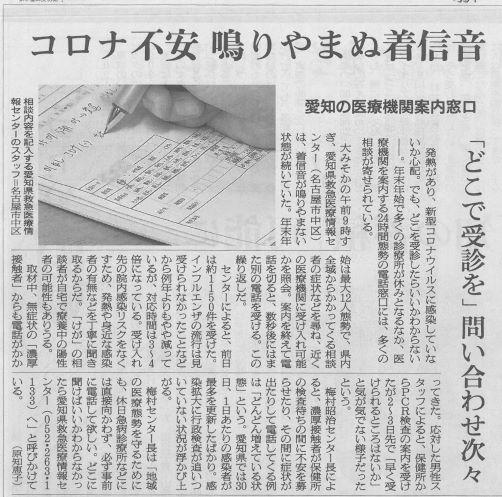 コロナ不安 鳴りやまぬ着信音
愛知の医療機関案内窓口
「どこで受診を」問い合わせ次々
発熱があり、新型コロナウイルスに感染していな
いか心配。でも、どこを受診したらいいかわからない
――。年末年始で多くの診療所が休みとなるなか、医
療機関を案内する24時間態勢の電話窓口には、多くの
相談が寄せられている。
大みそかの午前9時す
ぎ、愛知県救急医療情報セ
ンター(名古屋市中区)
は、着信音が鳴りやまない
状態が続いていた。年末年
相談内容を記入する愛知県救急医療情
報センターのスタッフ=名古屋市中区
始は最大12人態勢で、県内
全域からかかってくる相談
者の症状などを尋ね、近く
の医療機関に受け入れ可能
かを照会。案内を終えて電
話を切ると、数秒後にはま
た別の電話を受ける。この
繰り返しだ。
センターによると、前日
は約1150件を受けた。
インフルエンザの流行は見
受けられなかったことなど
から例年よりもやや減って
いるが、対応時間は3~4
倍になっている。受け入れ
先の院内感染リスクをなく
すため、発熱や身近な感染
者の有無などを丁寧に聞き
取るからだ。「けが」の相
談者が自宅で療養中の陽性
者の可能性もありうる。
取材中、無症状の「濃厚
接触者」からも電話がかか
ってきた。応対した男性ス
タッフによると、保健所か
らPCR検査の案内を受け
たが2~3日先で「早く受
けられるところはないか」
と気が気でない様子だった
という。
梅村昭治センター長によ
ると、濃厚接触者が保健所
の検査待ちの間に不安を募
らせたり、その間に症状が
出たりして電話してくる例
は「どんどん増えている状
態」という。愛知県では30
日、1日あたりの感染者が
最多を更新したばかり。感
染拡大に行政検査が追いつ
いていない状況が浮かび上
がる。
梅村センター長は「地域
の医療態勢を守るために
も、休日急病診療所などに
は直接向かわず、必ず事前
に電話して欲しい。どこに
聞けばいいかわからなかっ
たら愛知県救急医療情報セ
ンター(052・263・1
133)へ」と呼びかけて
いる。 (原知恵子)